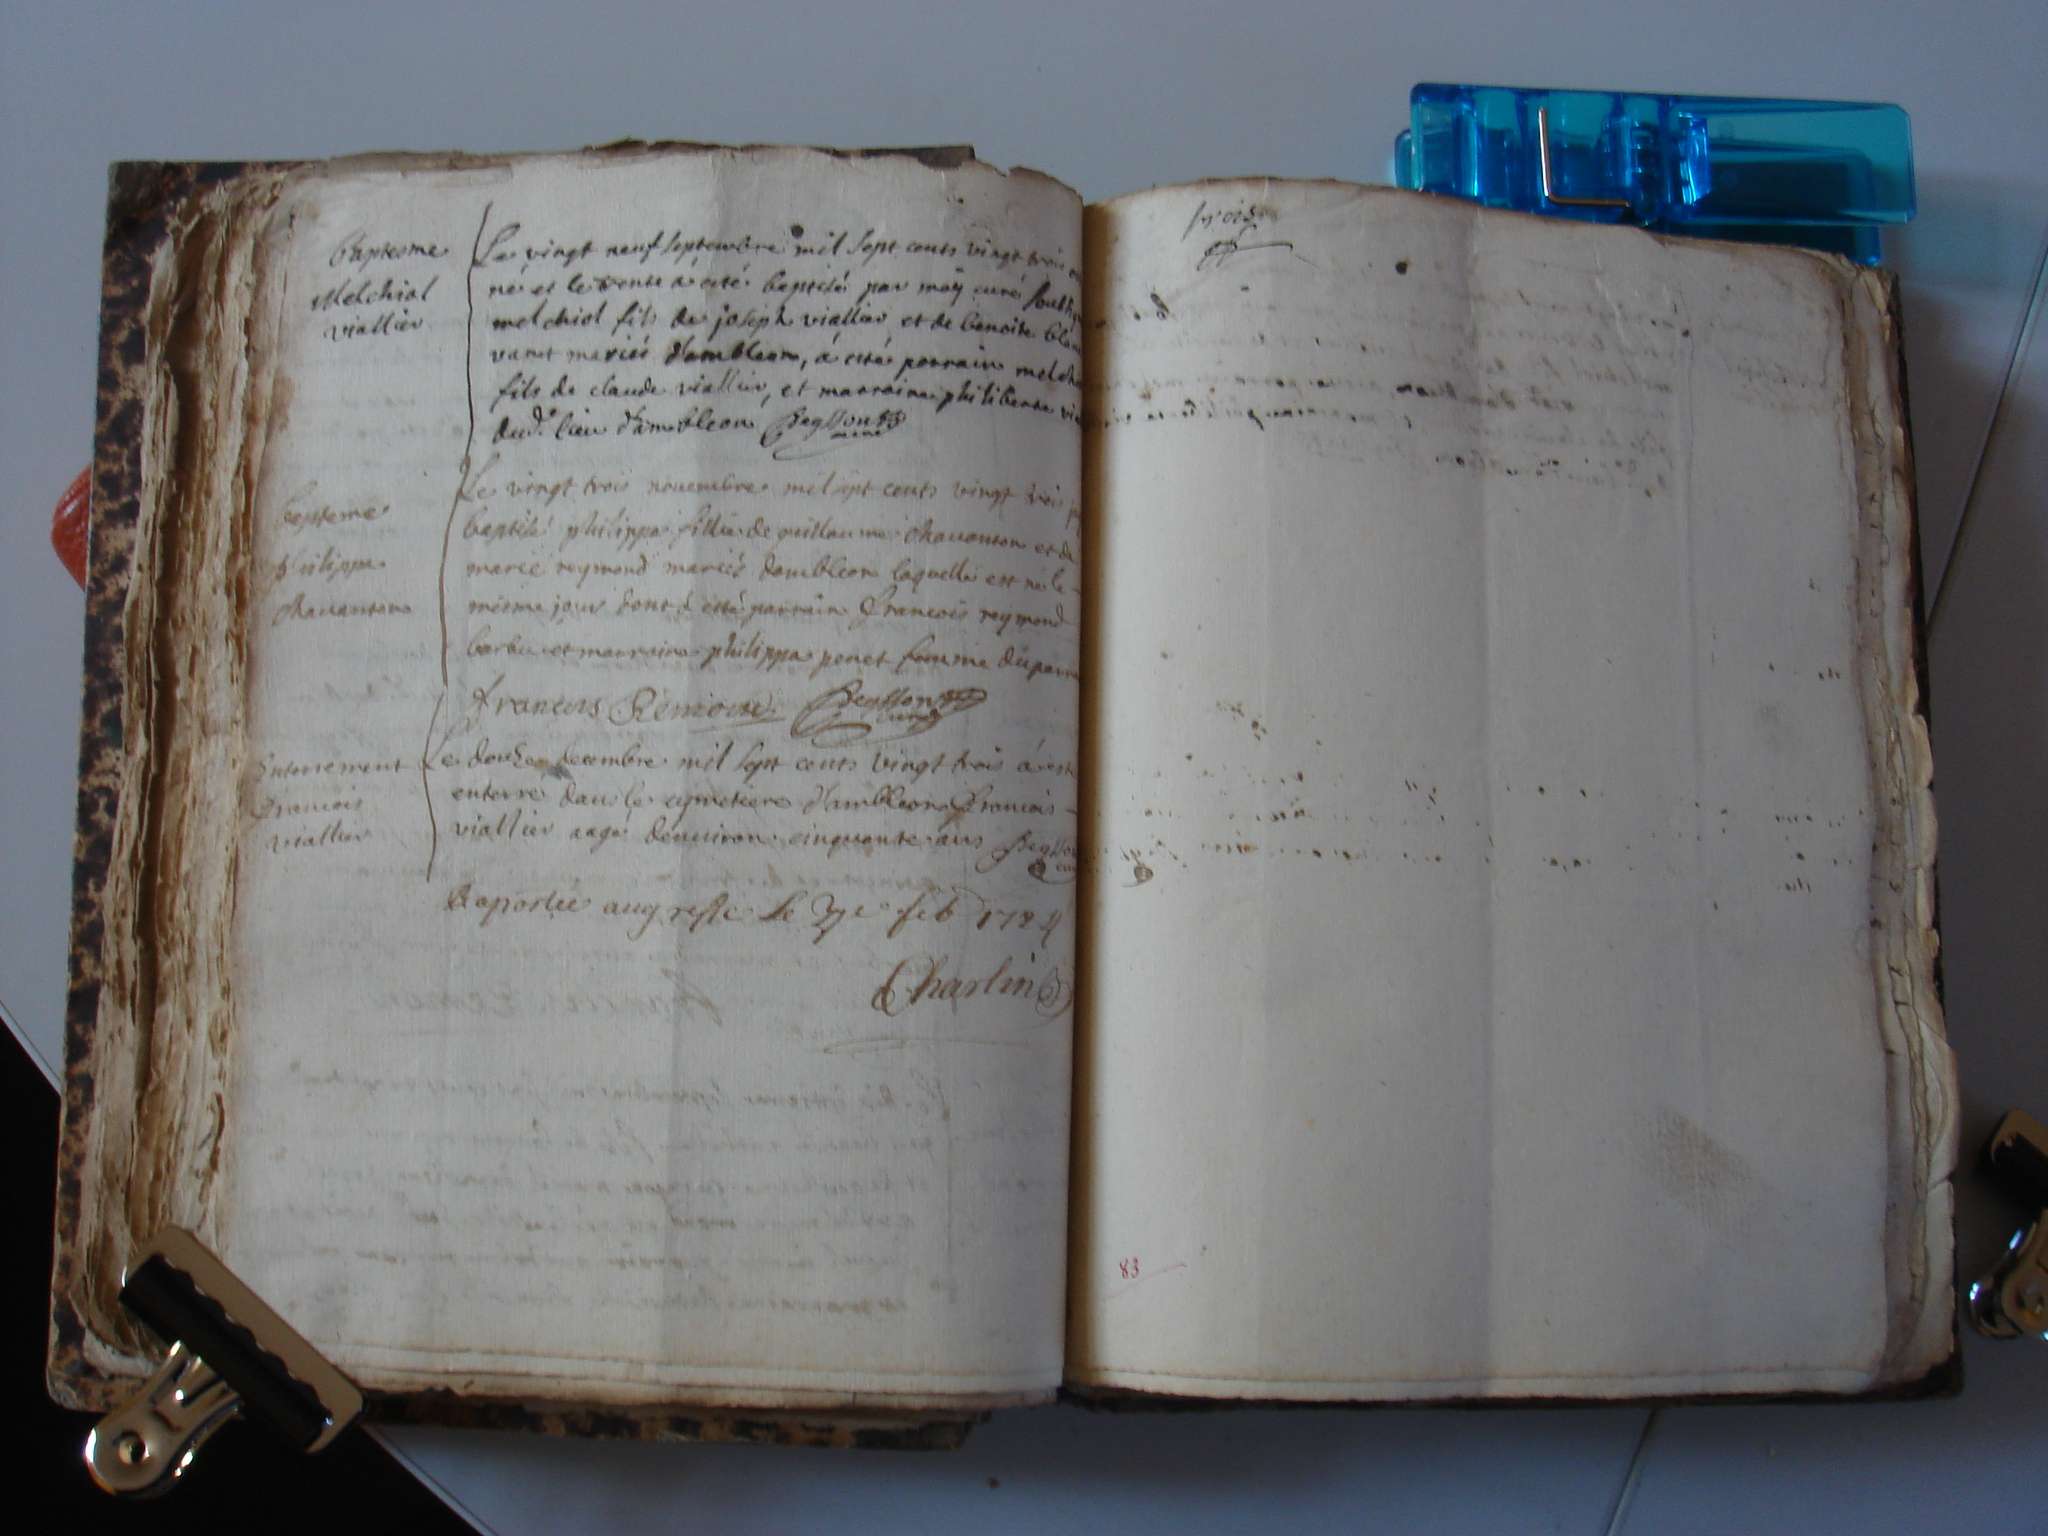 Baptesme
Melchiol
viallier
Le vingt neuf septembre mil sept cents vingt trois
né et le trente à esté baptisé par moy curé
melchiol fils de joseph viallier et de benoite
varet mariés d'ambleon, à esté parrain
fils de claude viallier, et marraine philiberte
dud. lieu d'ambleon Beysson
Bapteme
philippa
Chavanton
Le vingt trois novembre mil sept cents vingt trois
baptisé philippa fillie de guillaume Chavanton et de
marie reymond mariés dambleon laquelle est né le
mesme jour dont à esté parrain François reymond
barbu et marraine philippa ponet femme du
francois Remond Beysson curé
Enterrement
francois
viallier
Le douze decembre mil sept cents vingt trois à esté
enterré dans le cymetiere d'ambleon francois
viallier aagé denviron cinquante ans
Raportée au greffe le feb 1724
Charlin
trois
83